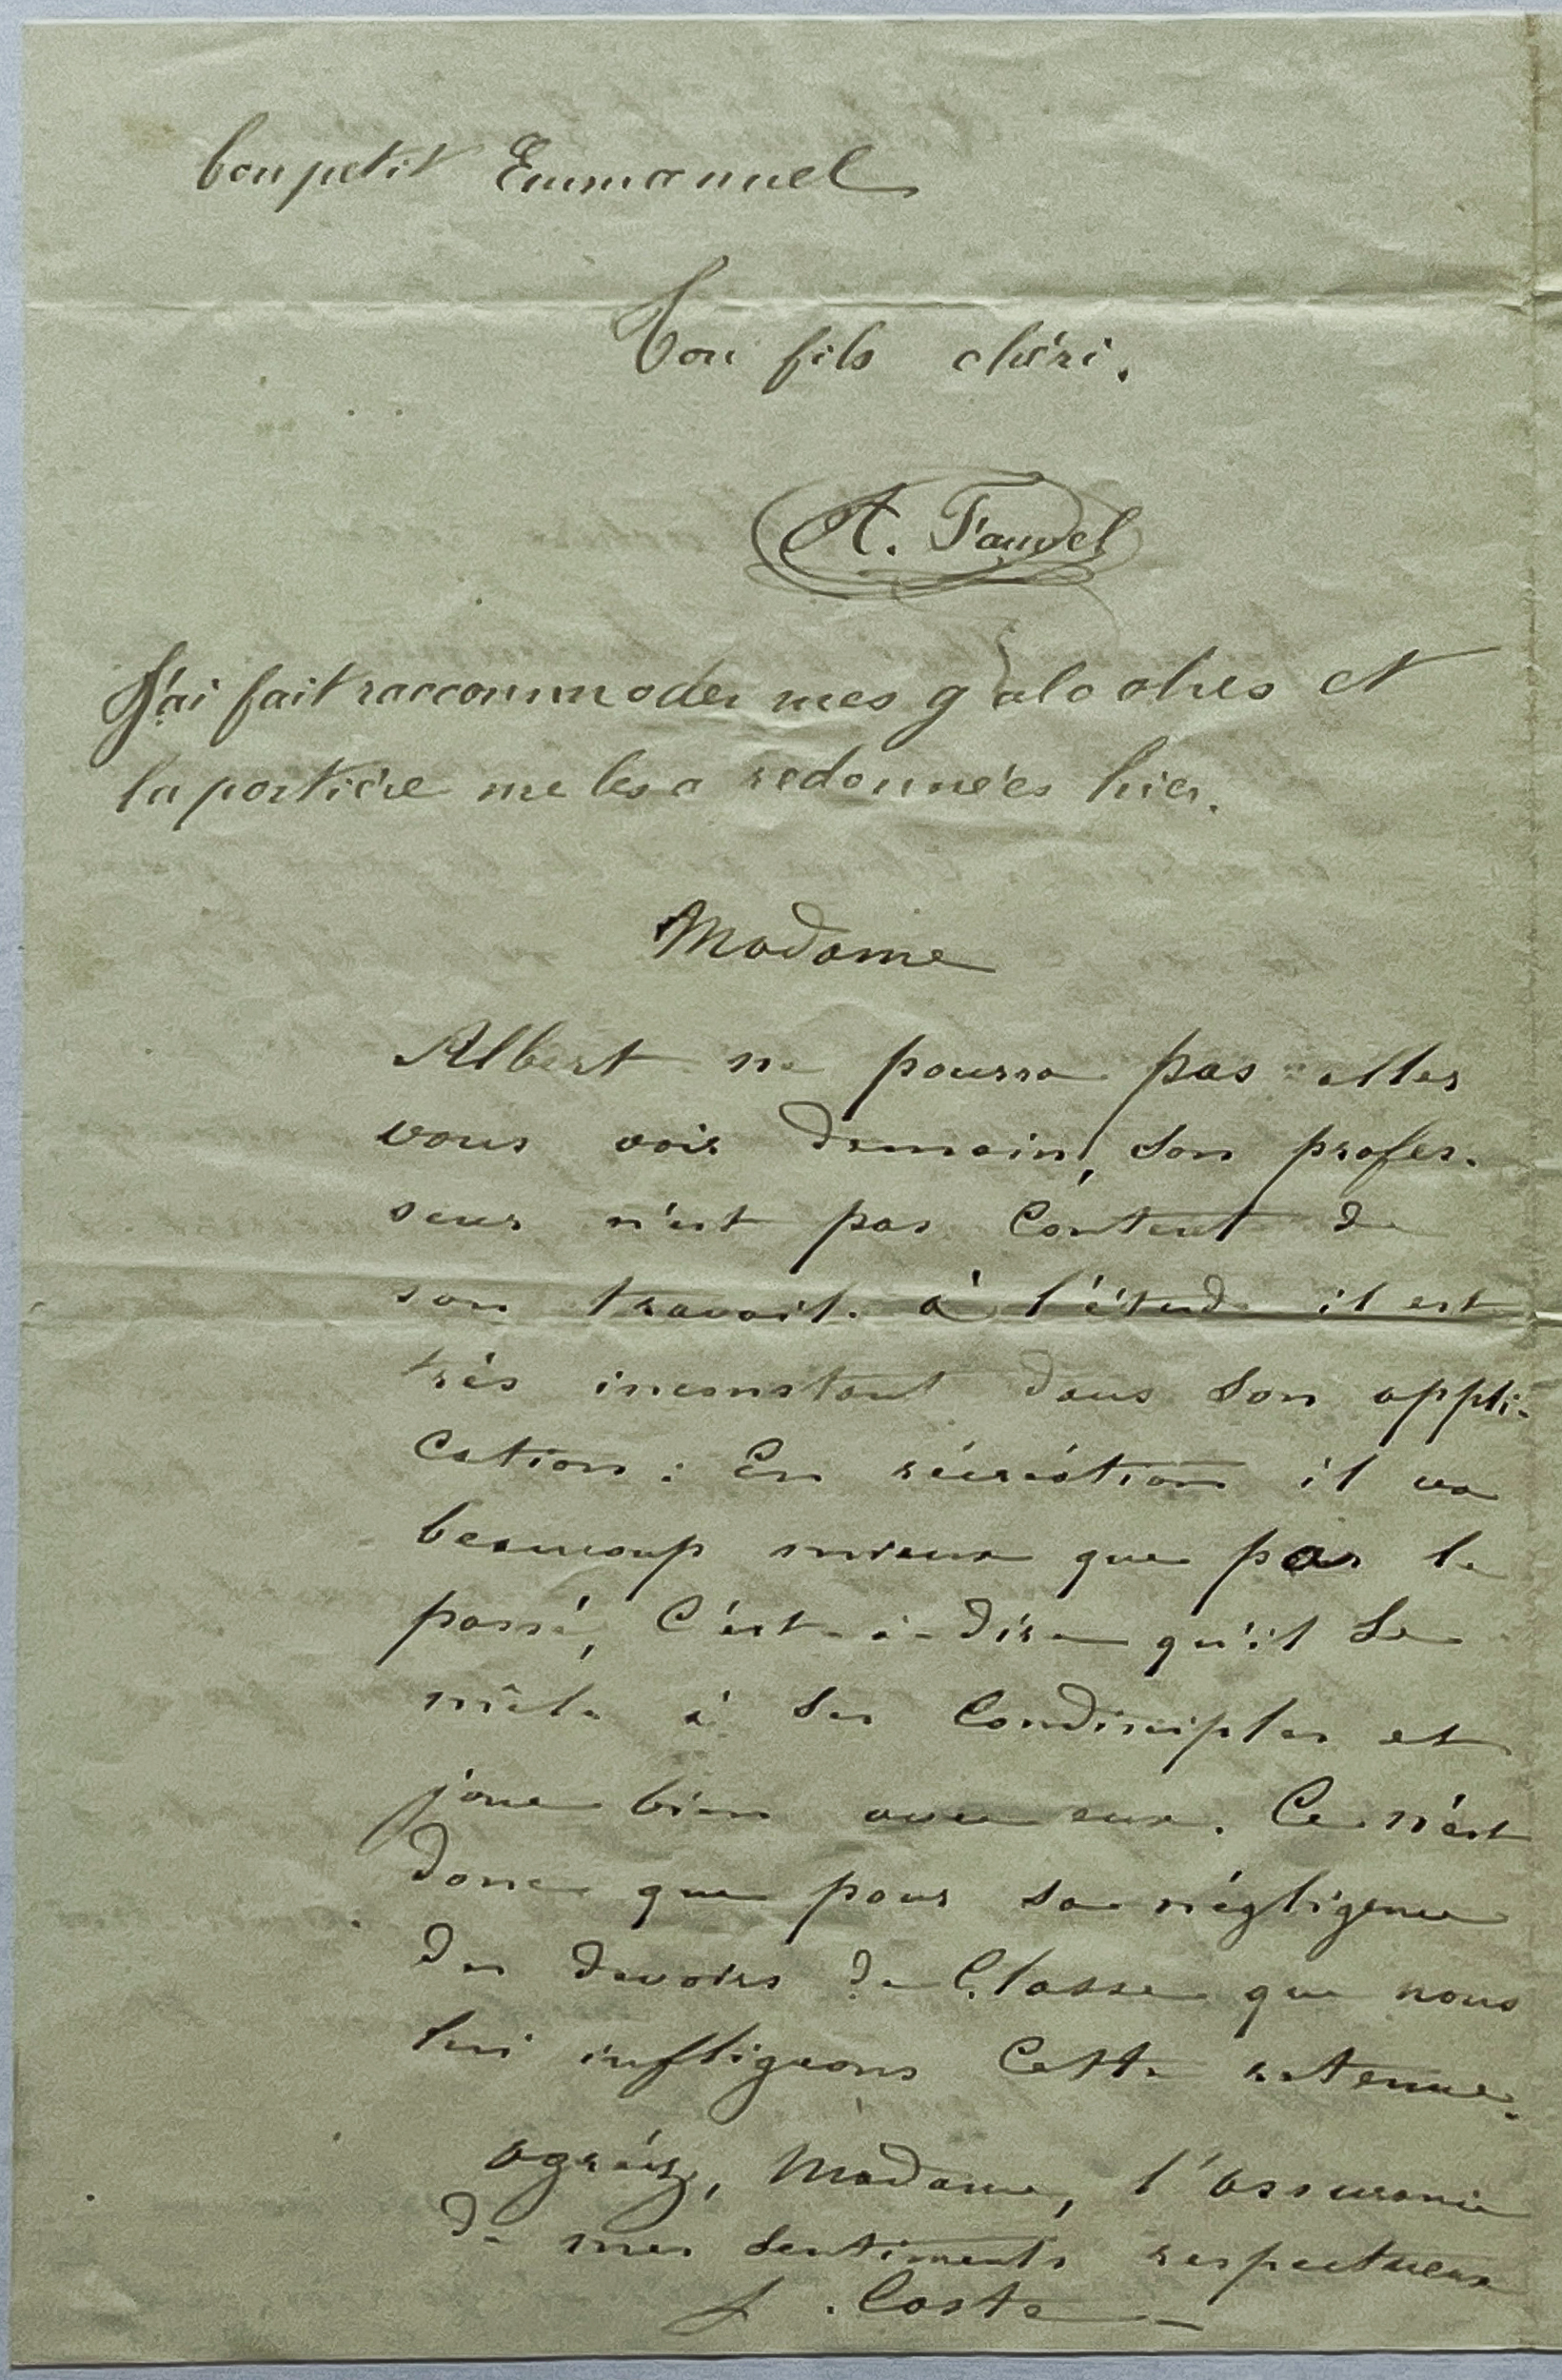 bon petit Emmanuel
Ton fils chéri.
A. Fauvel
J'ai fait raccommoder mes galoches et
la portière me les a redonnées hier.
Madame
Albert ne pourra pas aller
vous voir demain, son profes-
seur n'est pas content de
son travail. à l'étude il est
très inconstant dans son appli-
cation : En récréation il va
beaucoup mieux que par le
passé, C'est-à-dire qu'il se
mêle à ses condisciples et
joue bien avec eux. Ce n'est
donc que pour sa négligence
des devoirs de Classe que nous
lui infligeons cette retenue.
agréez, Madame, l'assurance
de mes sentiments respectueux
J. Coste